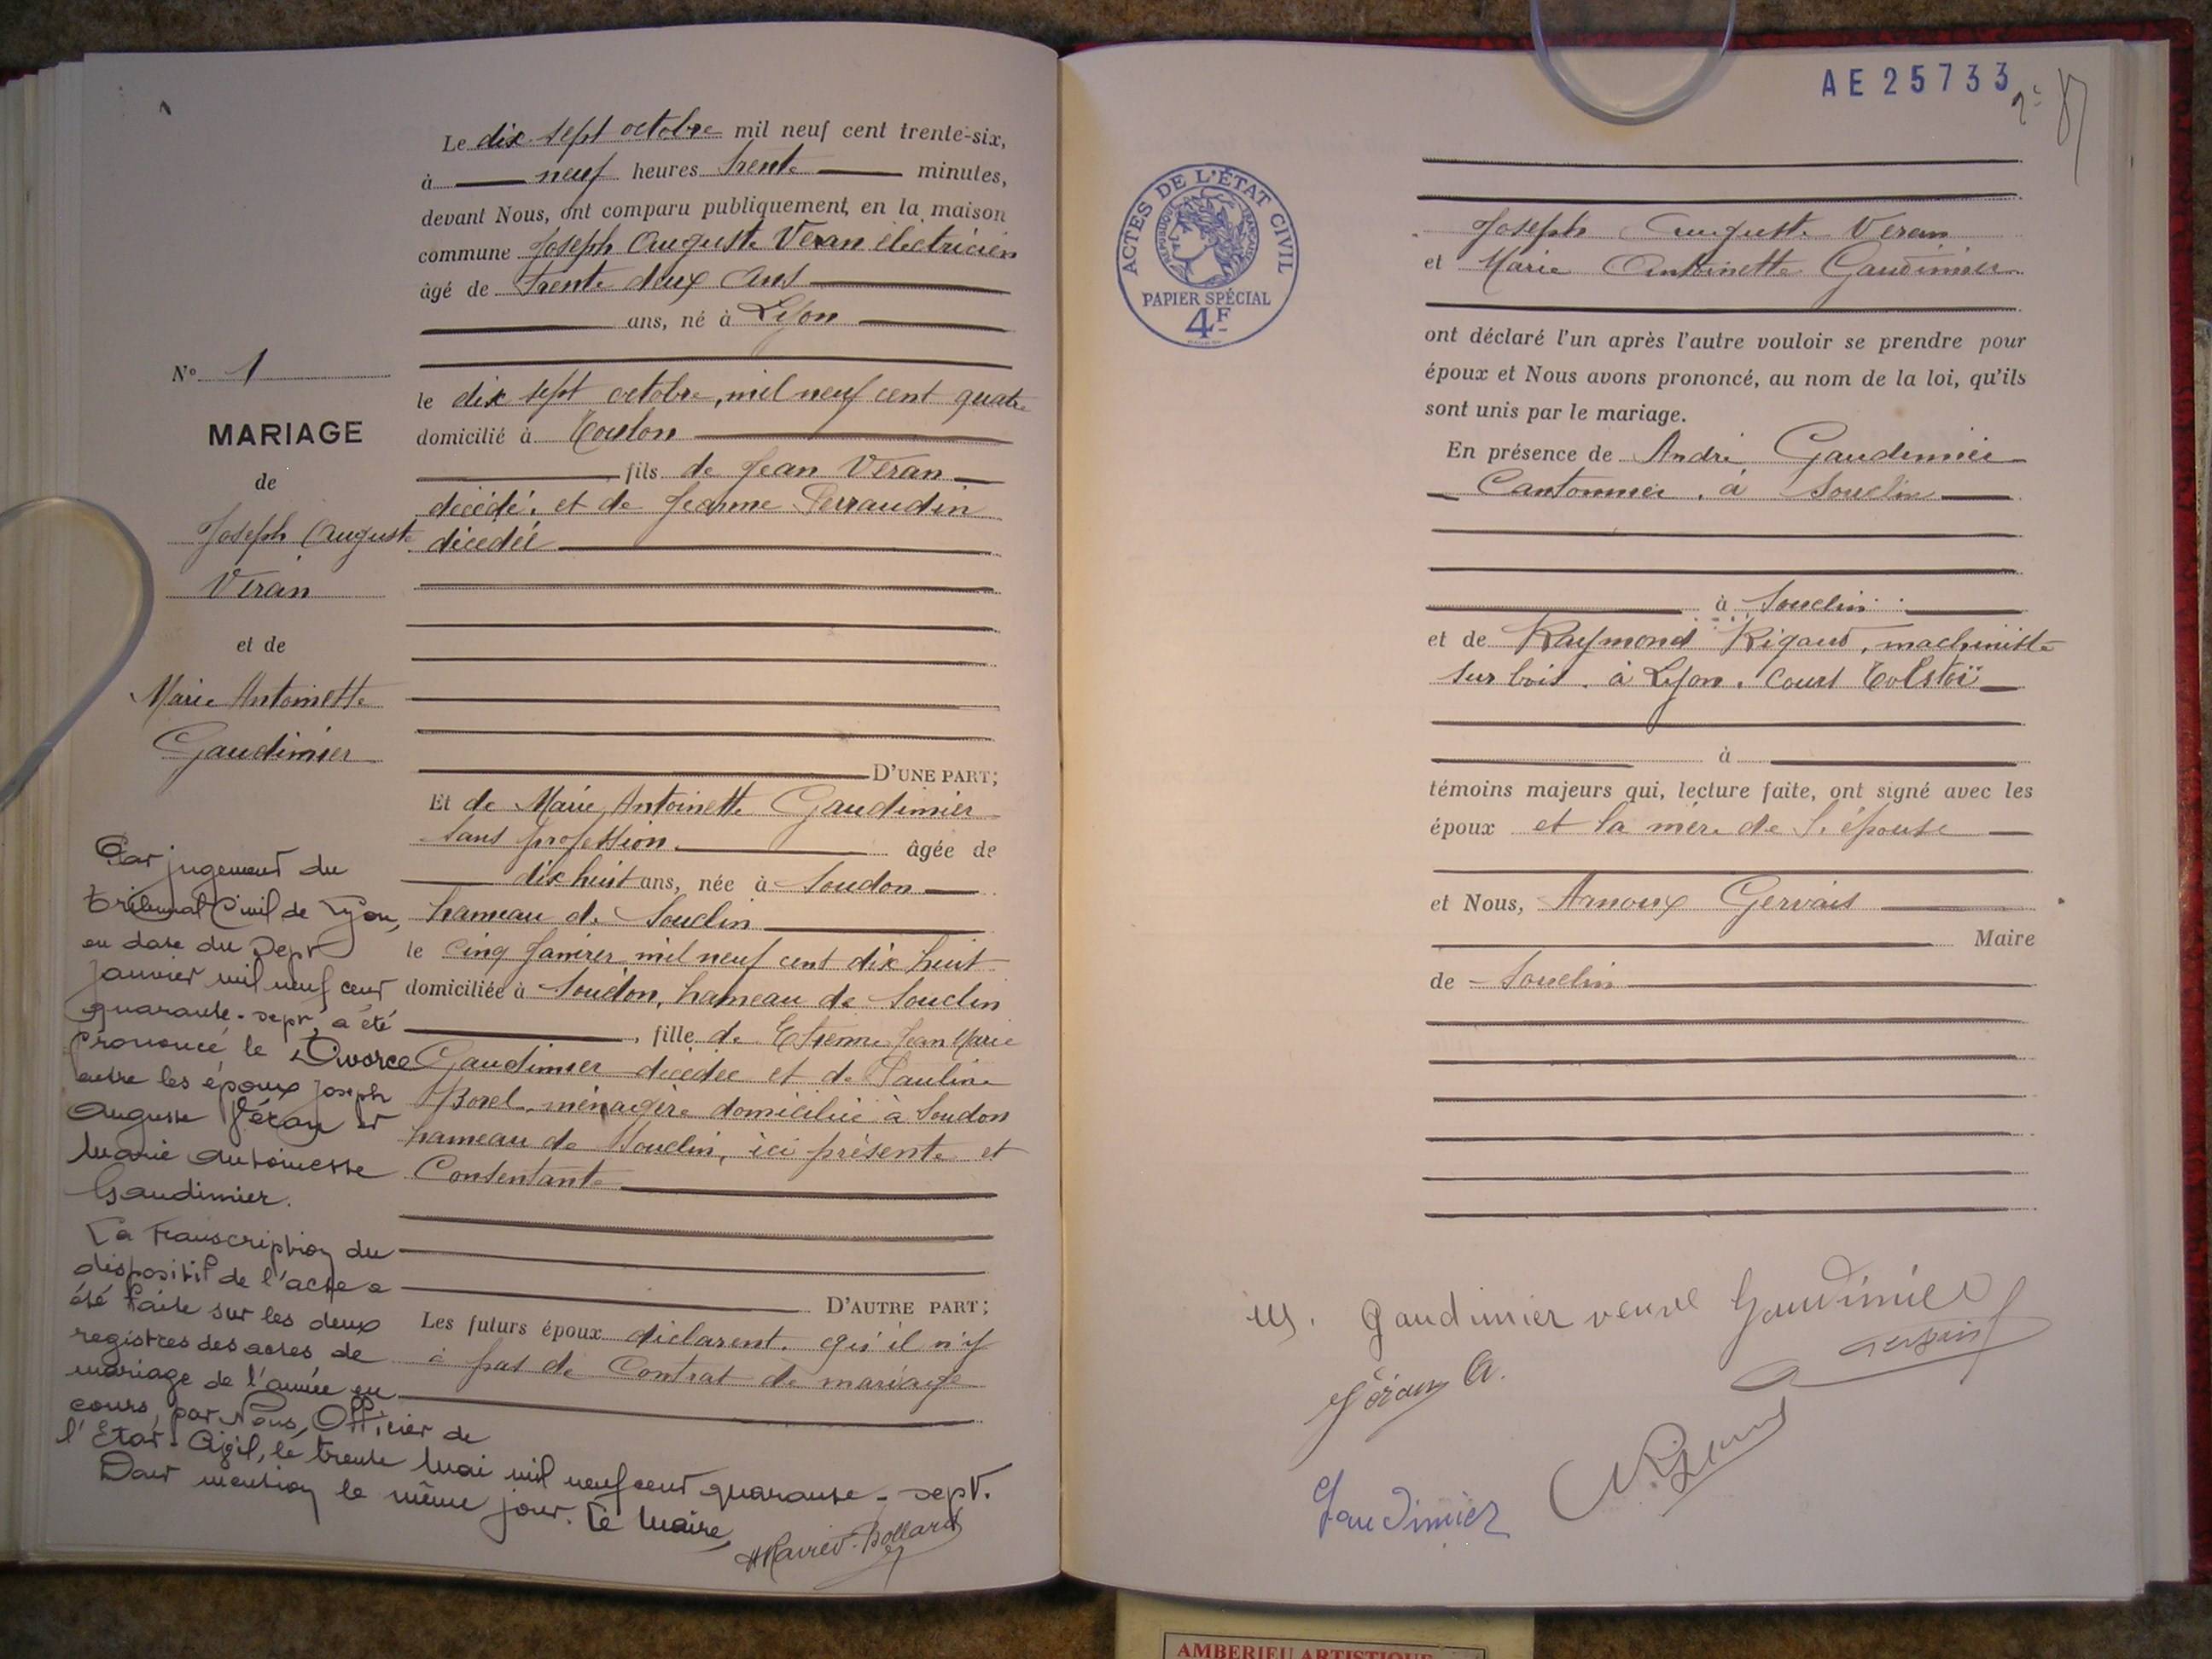 Le dix sept octobre mil neuf cent trente-six,
à neuf heures trente minutes,
devant Nous, ont comparu publiquement, en la maison
commune Joseph Auguste Veran électricien
âgé de trente deux ans
ans, né à Lyon
le dix sept octobre, mil neuf cent quatre
domicilié à Toulon
fils de Jean Veran
décédé, et de Jeanne Perraudin
décédée
D'UNE PART;
Et de Marie Antoinette Gaudimier
sans profession. âgée de
dix huit ans, née à Soudon
hameau de Souclin
le cinq Janvier mil neuf cent dix huit
domiciliée à Soudon, hameau de Souclin
, fille de Etienne Jean Marie
Gaudimier décédée et de Pauline
Borel, ménagère domiciliée à Soudon
hameau de Souclin, ici présente et
Consentante
D'AUTRE PART;
Les futurs époux déclarent. qu'il n'y
à pas de Contrat de mariage
N° 1
MARIAGE
de
Joseph Auguste
Veran
et de
Marie Antoinette
Gaudimier
Par jugement du
tribunal Civil de Lyon,
en date du Sept
Janvier mil neuf cent
quarante-sept, a été
Prononcé le Divorce
entre les époux Joseph
Auguste Véran et
Marie Antoinette
Gaudimier.
La Transcription du
dispositif de l'acte a
été faite sur les deux
registres des actes de
mariage de l'année en
cours, par Nous, Officier de
l'Etat-Civil, le trente Mai mil neuf cent quarante-sept.
Dont mention le même jour. Le Maire,
AE 25733
ACTES DE L'ÉTAT CIVIL
RÉPUBLIQUE FRANÇAISE
PAPIER SPÉCIAL
4F
Joseph Auguste Veran
et Marie Antoinette Gaudimier
ont déclaré l'un après l'autre vouloir se prendre pour
époux et Nous avons prononcé, au nom de la loi, qu'ils
sont unis par le mariage.
En présence de André Gaudimier
Cantonnier, à Souclin
à Souclin
et de Raymond Rigaud, machiniste
sur bois, à Lyon. Cours Tolstoï
à
témoins majeurs qui, lecture faite, ont signé avec les
époux et la mère de l'épouse
et Nous, Arnoux Gervais
Maire
de Souclin
M. Gaudimier veuve Gaudimier
Véran A.
Gaudimier
AMBERIEU ARTISTIQUE